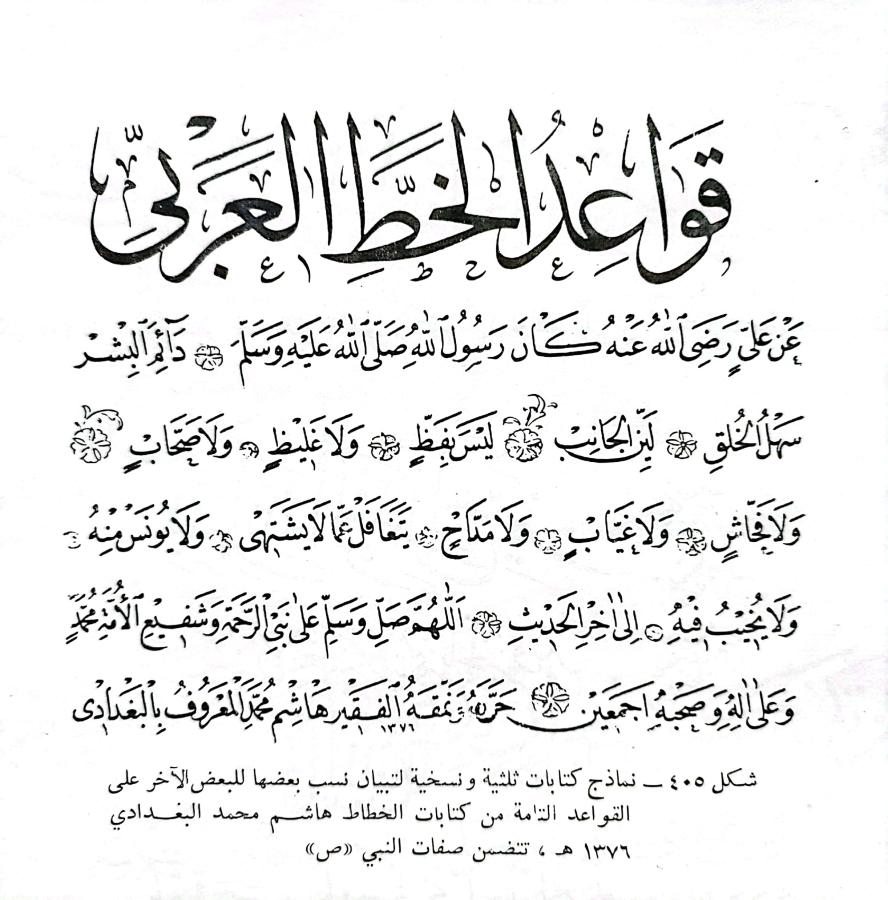 قَوَاعِدُ الخَطِّ العَرَبِيِّ
عَنْ عَلِيٍّ رَضِيَ ٱللّٰهُ عَنْهُ كَانَ رَسُولُ ٱللّٰهِ صَلَّى ٱللّٰهُ عَلَيْهِ وَسَلَّمَ دَآئِمَ ٱلْبِشْرِ
سَهْلُ الْخُلُقِ لَيِّنَ الْجَانِبِ لَيْسَ بِفَظٍّ وَلَا غَلِيظٍ وَلَا صَخَّابٍ
وَلَا فَحَّاشٍ وَلَا غَيَّابٍ وَلَا مَدَّاحٍ يَتَغَافَلُ عَمَّا لَا يَشْتَهٰى وَلَا يُونَسُ مِنْهُ
وَلَا يُخَيِّبُ فِيهِ اِلٰى اٰخِرِ الْحَدِيثِ اَللّٰهُمَّ صَلِّ وَسَلِّمْ عَلٰى نَبِيِّ الرَّحْمَةِ وَشَفِيعِ الْأُمَّةِ مُحَمَّدٍ
وَعَلٰى اٰلِهِ وَصَحْبِهِ اَجْمَعِينَ حَرَّرَهُ وَنَمَّقَهُ ٱلْفَقِيرُ هَاشِمْ مُحَمَّدْ الْمَعْرُوفُ بِالْبَغْدَادِى ١٣٧٦
شكل ٤٠٥ ــ نماذج كتابات ثلثية ونسخية لتبيان نسب بعضها للبعض الآخر على
القواعد التامة من كتابات الخطاط هاشم محمد البغدادي
١٣٧٦ هـ ، تتضمن صفات النبي «ص»